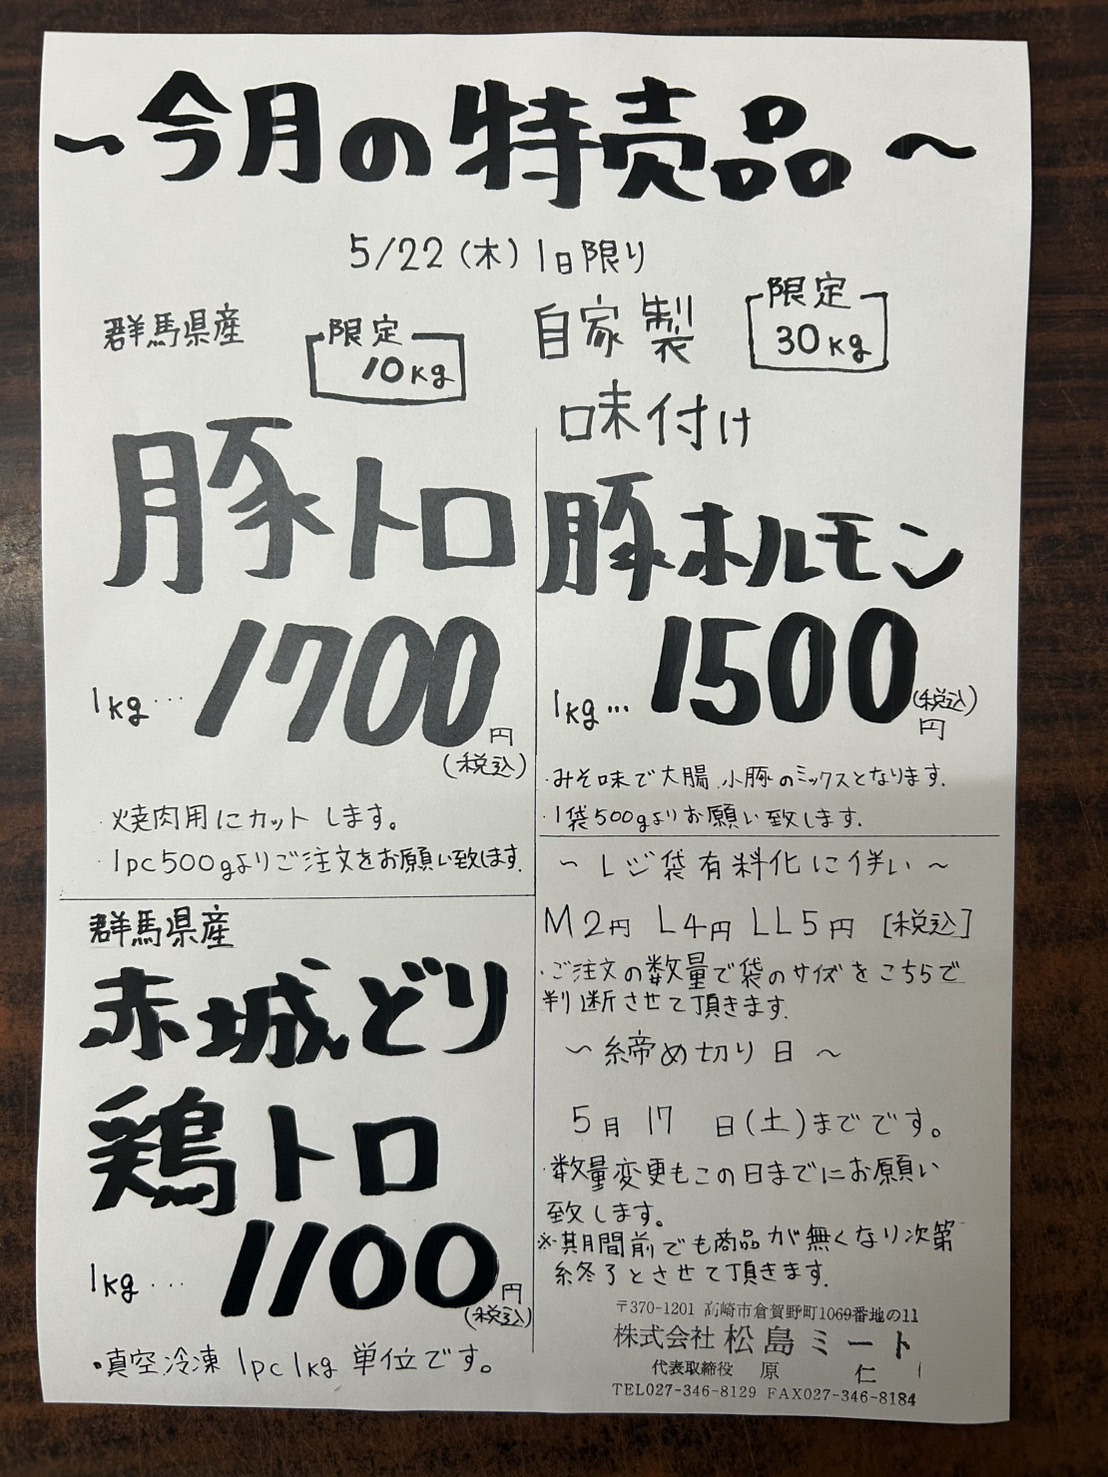 ～今月の特売品～
5/22(木)1日限り
群馬県産
限定
10kg
豚トロ
1kg…1700円
(税込)
・焼肉用にカットします。
・1pc500gよりご注文をお願い致します.
自家製
限定
30kg
味付け
豚ホルモン
1kg…1500(税込)
円
・みそ味で大腸、小豚のミックスとなります.
・1袋500gよりお願い致します.
群馬県産
赤城どり
鶏トロ
1kg…1100円
(税込)
・真空冷凍1pc1kg単位です。
～レジ袋有料化に伴い～
M2円 L4円 LL5円 [税込]
・ご注文の数量で袋のサイズをこちらで
判断させて頂きます.
～締め切り日～
5月17日(土)までです。
・数量変更もこの日までにお願い
致します。
※期間前でも商品が無くなり次第
終了とさせて頂きます.
〒370-1201 高崎市倉賀野町1069番地の11
株式会社 松島ミート
代表取締役 原 仁
TEL027-346-8129 FAX027-346-8184